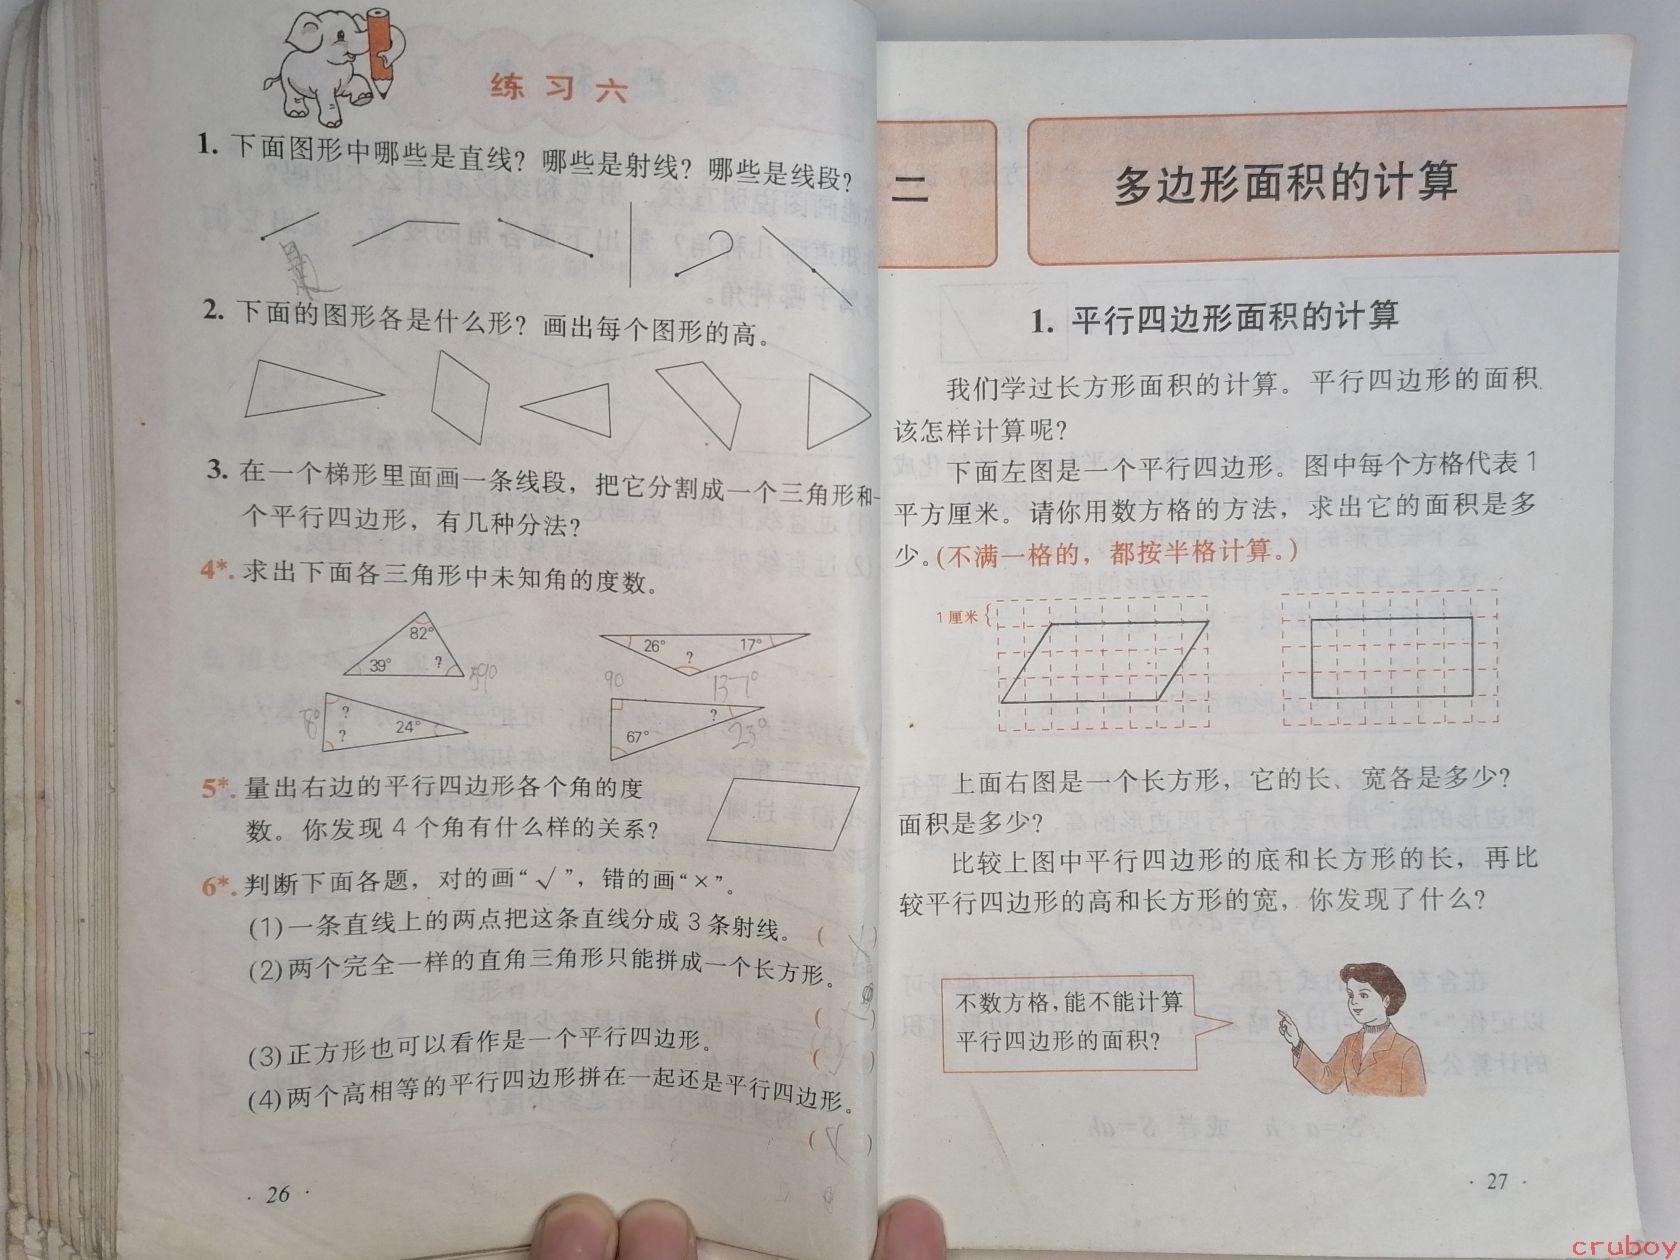 练习六
1. 下面图形中哪些是直线？哪些是射线？哪些是线段？
2. 下面的图形各是什么形？画出每个图形的高。
3. 在一个梯形里面画一条线段，把它分割成一个三角形和一
个平行四边形，有几种分法？
4*. 求出下面各三角形中未知角的度数。
82°
39°
?
590
26°
?
17°
137°
?
?
24°
78°
90
?
67°
23°
5*. 量出右边的平行四边形各个角的度
数。你发现 4 个角有什么样的关系？
6*. 判断下面各题，对的画“√”，错的画“×”。
(1)一条直线上的两点把这条直线分成 3 条射线。 ( × )
(2)两个完全一样的直角三角形只能拼成一个长方形。
( × )
(3)正方形也可以看作是一个平行四边形。 ( )
(4)两个高相等的平行四边形拼在一起还是平行四边形。
( )
· 26 ·
二
多边形面积的计算
1. 平行四边形面积的计算
我们学过长方形面积的计算。平行四边形的面积
该怎样计算呢？
下面左图是一个平行四边形。图中每个方格代表 1
平方厘米。请你用数方格的方法，求出它的面积是多
少。(不满一格的，都按半格计算。)
1 厘米
上面右图是一个长方形，它的长、宽各是多少？
面积是多少？
比较上图中平行四边形的底和长方形的长，再比
较平行四边形的高和长方形的宽，你发现了什么？
不数方格，能不能计算
平行四边形的面积？
· 27 ·
cruboy